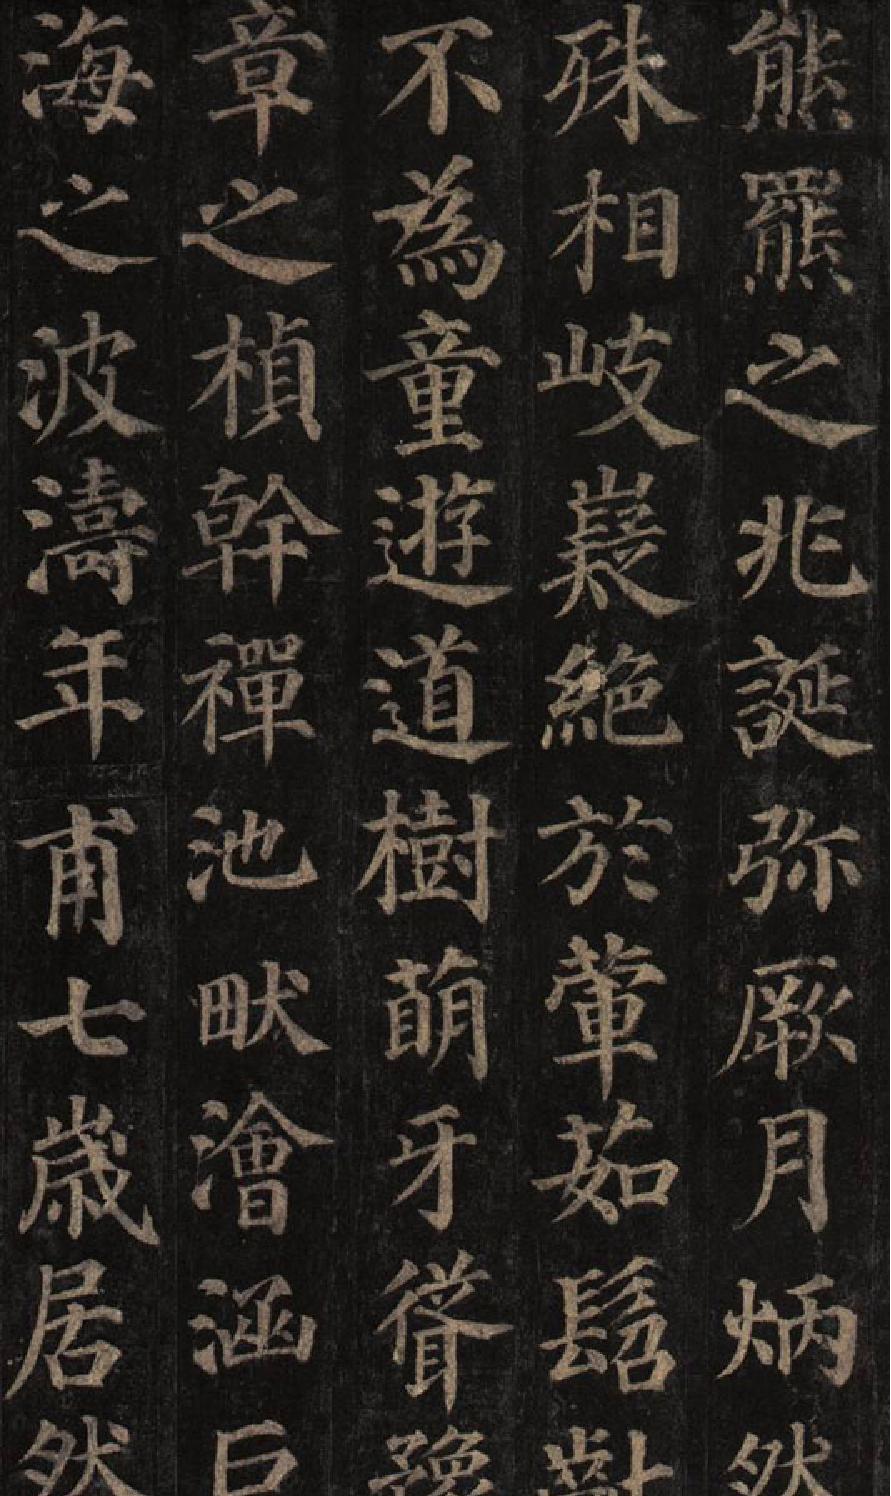 熊羆之兆誕弥厥月炳然
殊相岐嶷絶於葷茹髫齓
不為童遊道樹萌牙聳豫
章之楨幹禪池畎澮涵巨
海之波濤年甫七歳居然